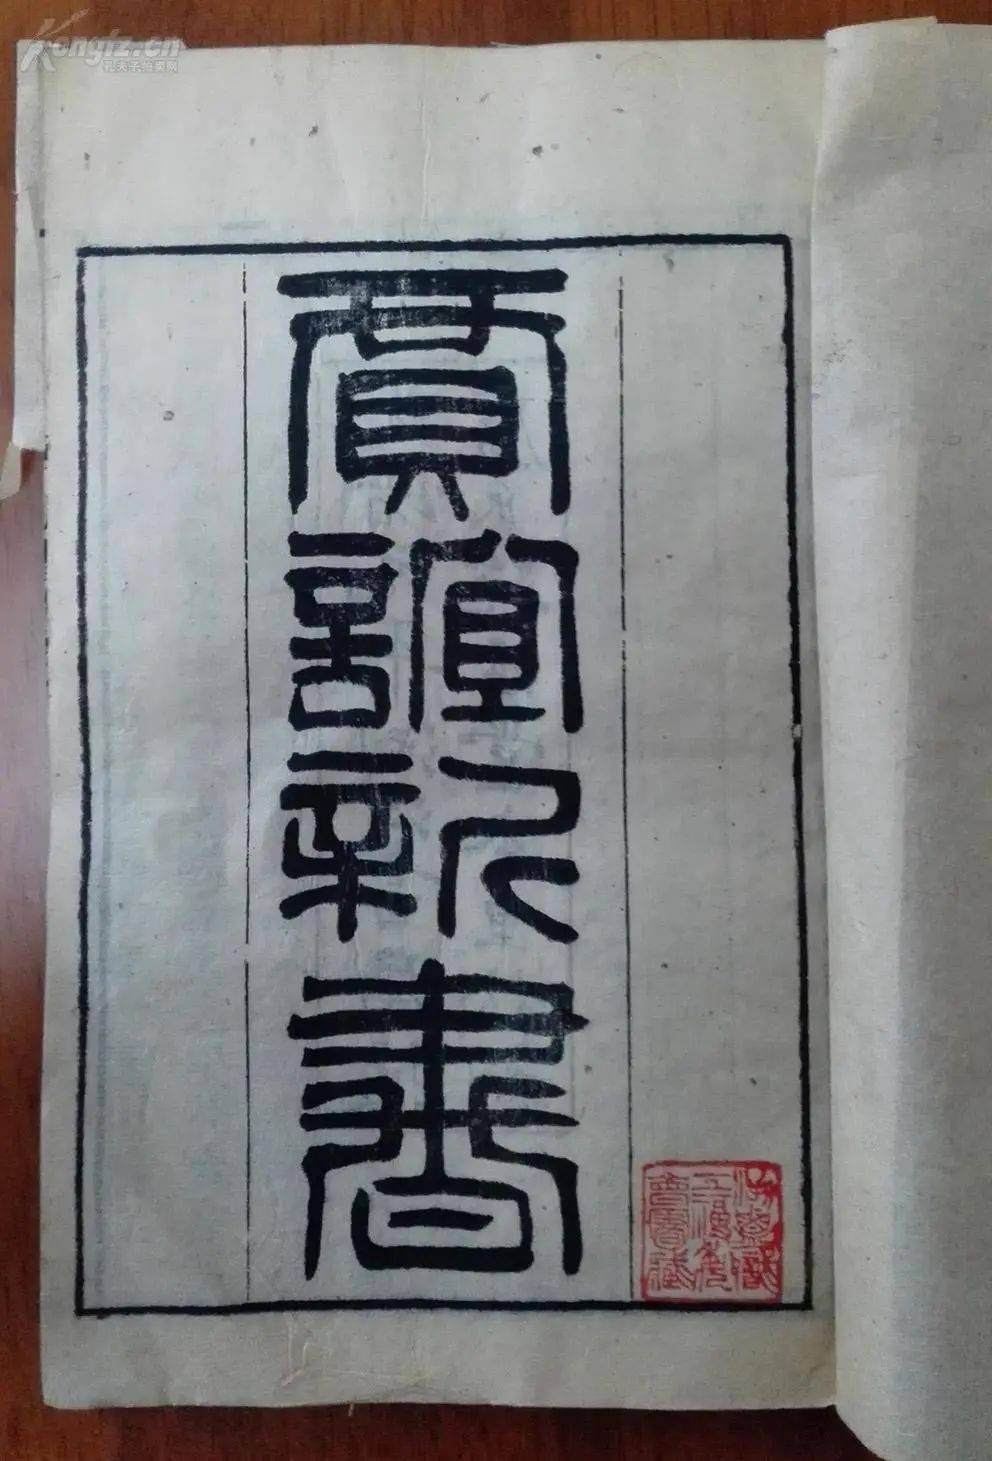 賈誼新書
Kongfz.cn
孔夫子拍卖网